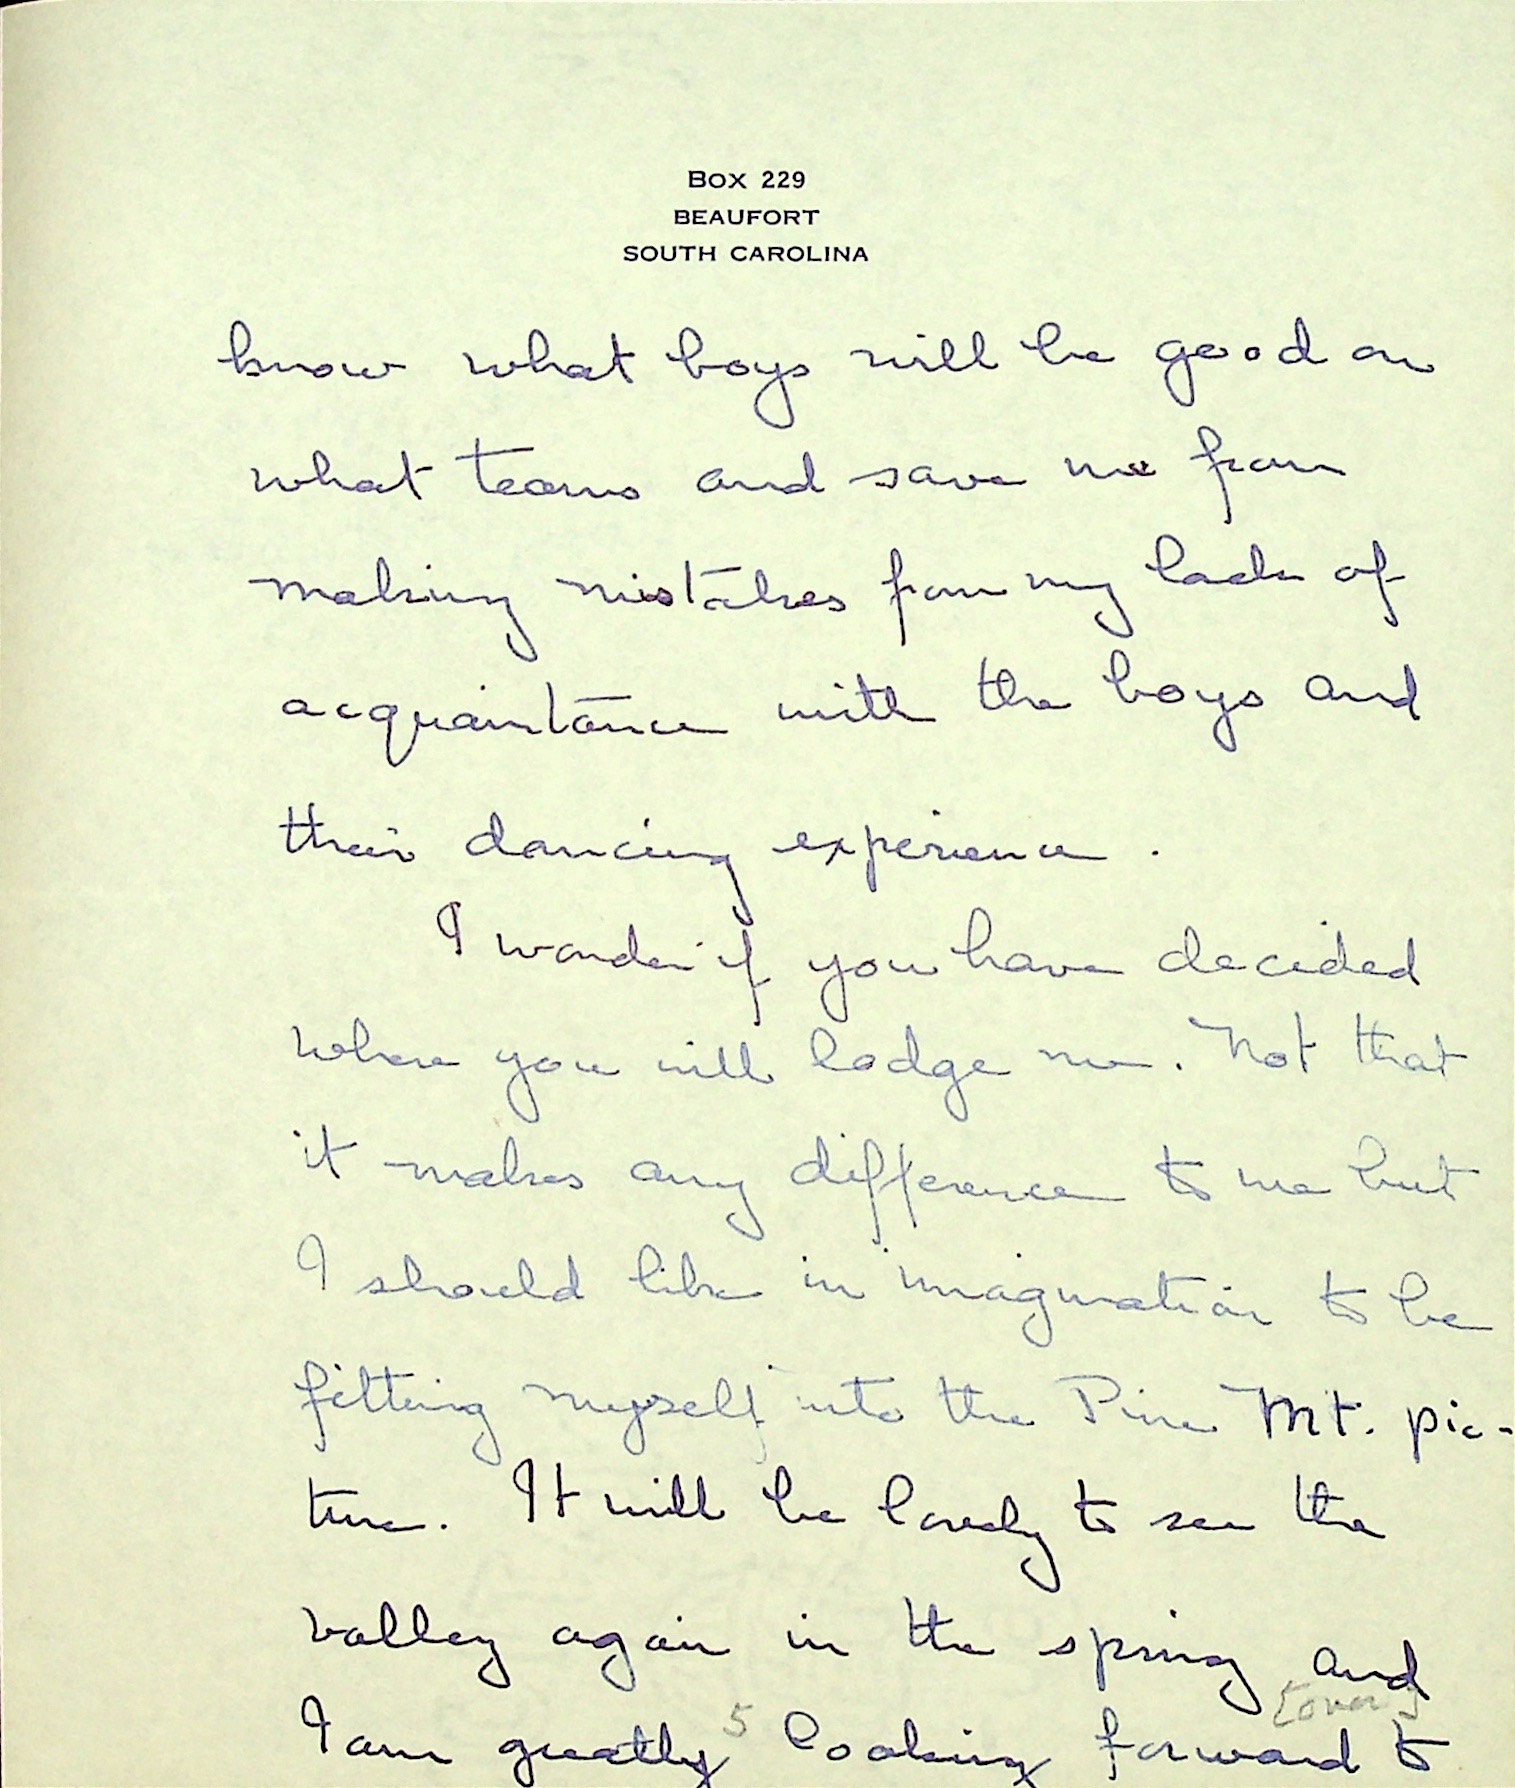 BOX 229
BEAUFORT
SOUTH CAROLINA
know what boys will be good on
what teams and save me from
making mistakes from my lack of
acquaintance with the boys and
their dancing experience.
I wonder if you have decided
where you will lodge me. Not that
it makes any difference to me but
I should like in imagination to be
fitting myself into the Pine Mt. pic-
ture. It will be lovely to see the
valley again in the spring and
[over]
5
I am greatly looking forward to